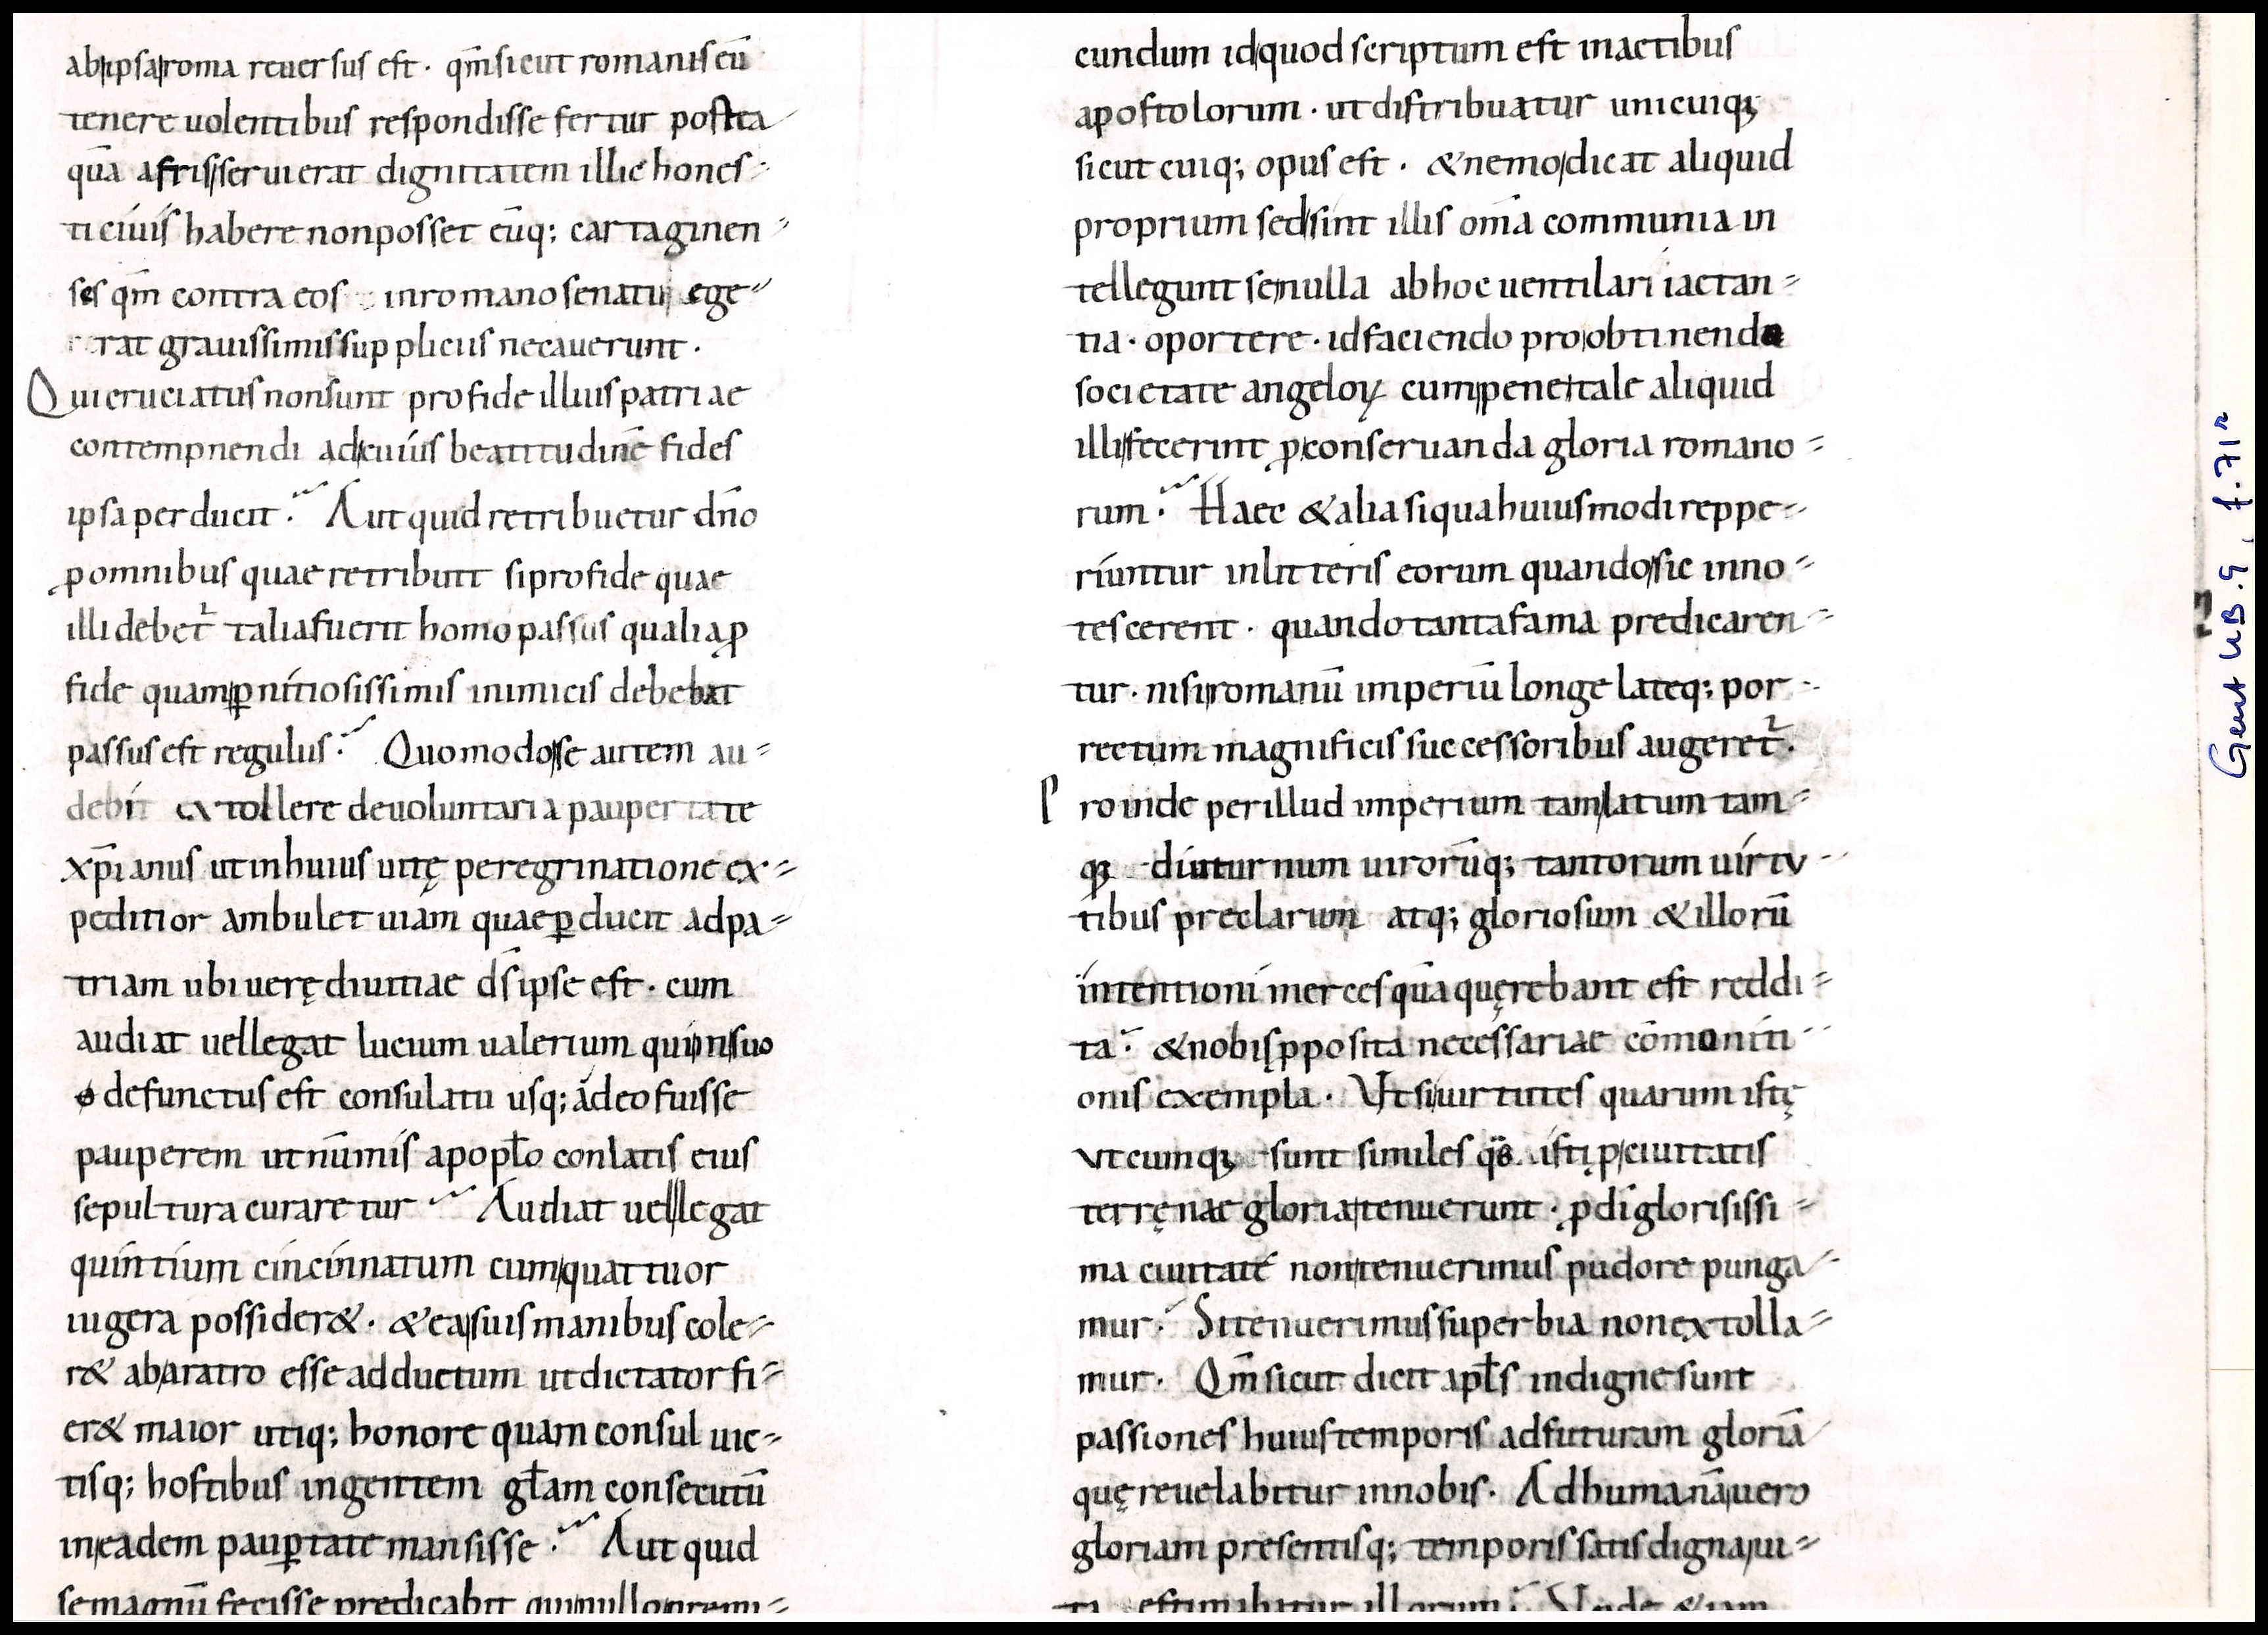 ab ipsa roma reuersus est · qm̄ sicut romanis eū
tenere uolentibus respondisse fertur postea
quā afris seruierat dignitatem illic hones-
ti ciuis habere non posset eūq; cartaginen-
ses qm̄ contra eos in romano senatu ege-
rat grauissimis suppliciis necauerunt .
Qui cruciatus non sunt pro fide illius patriae
contempnendi ad cuius beatitudinē fides
ipsa perducit . Aut quid retribuetur dn̄o
ꝓ omnibus quae retribuit si pro fide quae
illi debet᷑ talia fuerit homo passus qualia ꝓ
fide quam ꝑnitiosissimis inimicis debebat
passus est regulus . Quomodo se autem au-
debit extollere de uoluntaria paupertate
xp̄ianus ut in huius uitę peregrinatione ex-
peditior ambulet uiam quae ꝑducit ad pa-
triam ubi uerę diuitiae ds̄ ipse est . cum
audiat uel legat lucium ualerium qui in suo
defunctus est consulatu usq; adeo fuisse
pauperem ut nūmis a popl̄o conlatis eius
sepultura curaretur Audiat uel legat
quintium cincinnatum cum quattuor
iugera possider& . & ea suis manibus cole-
r& ab aratro esse adductum ut dictator fi-
er& maior utiq; honore quam consul uic-
tisq; hostibus ingentem gl̄am consecutū
in eadem pauꝑtate mansisse . Aut quid
se magnū fecisse predicabit qui nullo premi-
cundum id quod scriptum est in actibus
apostolorum . ut distribuatur unicuiqꝫ
sicut cuiq; opus est . & nemo dicat aliquid
proprium sed sint illis om̄a communia in
tellegunt se nulla ab hoc uentilari iactan-
tia . oportere . id faciendo pro obtinenda
societate angeloꝝ cum pene tale aliquid
illi fecerint ꝓ conseruanda gloria romano-
rum . Haec & alia siqua huiusmodi reppe-
riuntur in litteris eorum quando sic inno-
tescerent . quando tanta fama predicaren-
tur . nisi romanū imperiū longe lateq; por-
rectum magnificis successoribus augeret᷑ .
Proinde per illud imperium tam latum tam-
qꝫ diuturnum uirorūq; tantorum uirtu-
tibus preclarum atq; gloriosum & illorū
intentioni merces quā quęrebant est reddi-
ta . & nobis ꝓposita necessariae cōmoniti-
onis exempla . Ut si uirtutes quarum istę
utcumqꝫ sunt similes isti ꝓ ciuitatis
terręnae gloria tenuerunt . ꝓ di glorisissi-
ma ciuitate non tenuerimus pudore punga-
mur . Si tenuerimus superbia non extolla-
mur . Qm̄ sicut dicit apl̄s indigne sunt
passiones huius temporis ad futuram gloriā
quę reuelabitur in nobis . Ad humanā uero
gloriam presentisq; temporis satis digna ui-
ta estimabatur illorum . Unde & iam
Gent UB. 9, f. 71r